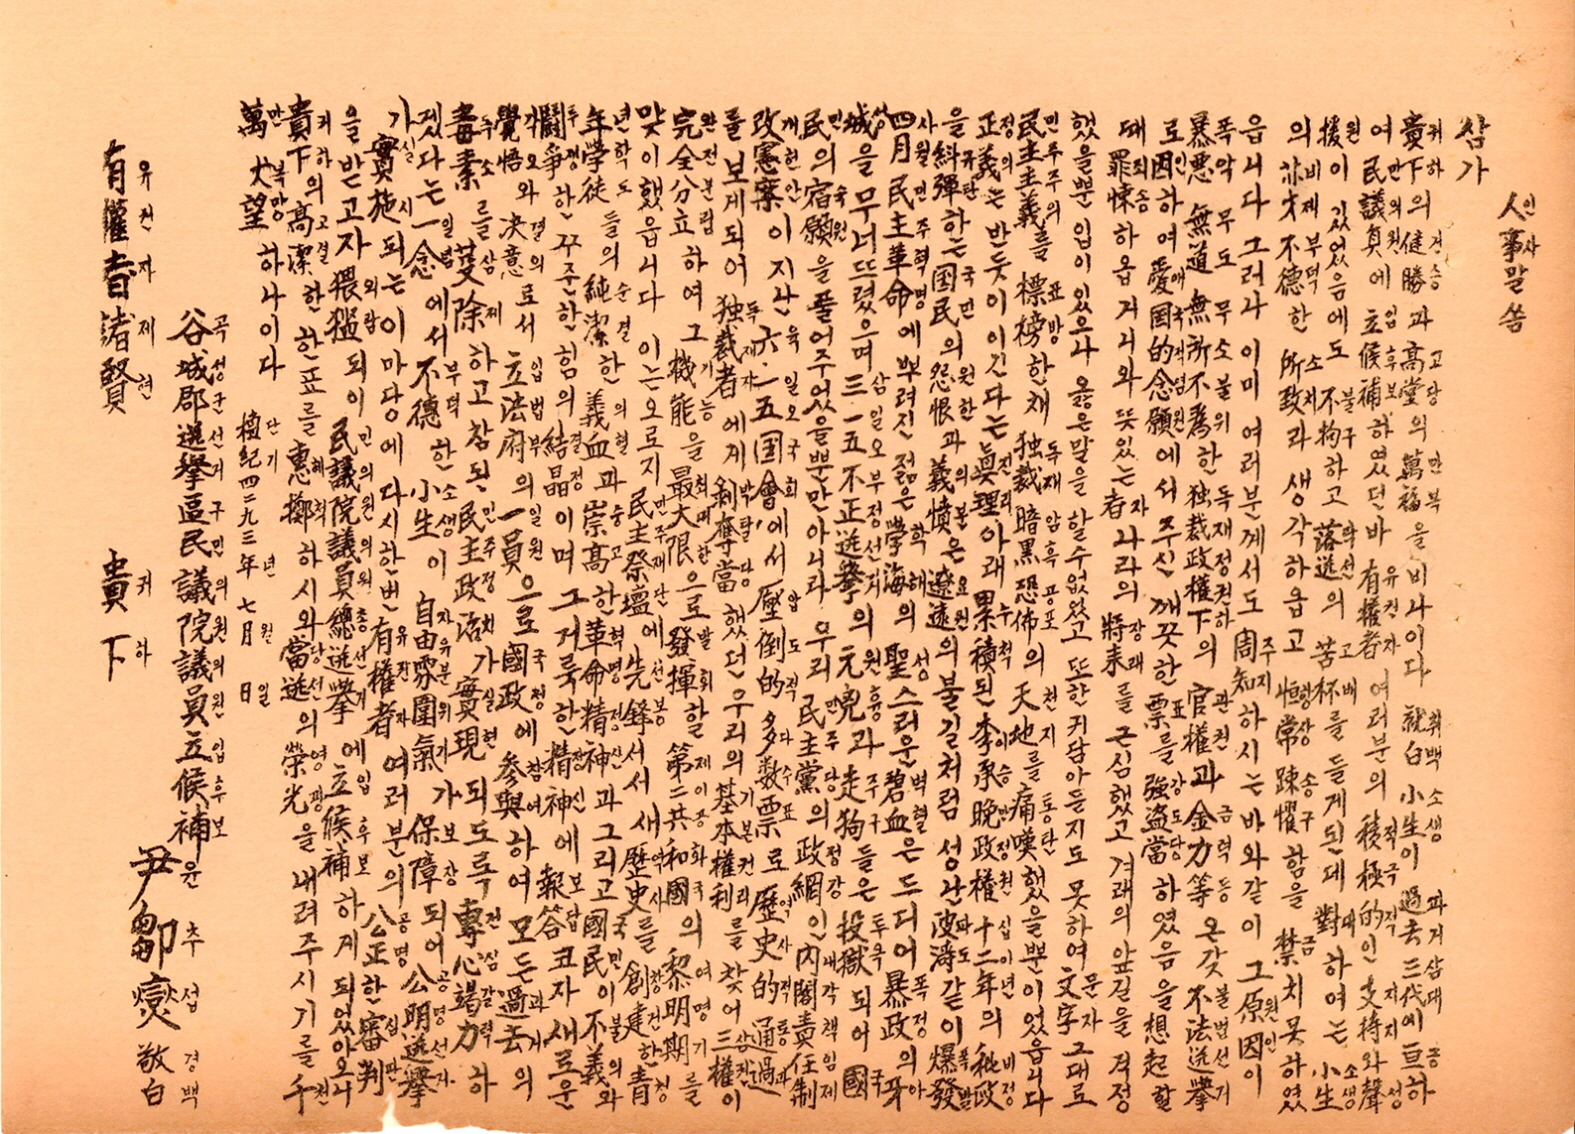 人事말씀
삼가
貴下의 健勝과 高堂의 萬福을 비나이다 就白 小生이 過去 三代에 亘하
여 民議員에 立候補하였던바 有權者 여러분의 積極的인 支持와 聲
援이 있었음에도 不拘하고 落選의 苦杯를 들게된데 對하여는 小生
의 菲才不德한 所致라 생각하옵고 恒常 悚懼함을 禁치못하였
읍니다 그러나 이미 여러분께서도 周知하시는바와같이 그 原因이
暴惡無道 無所不爲한 独裁政權下의 官權과 金力等 온갖 不法選擧
로 因하여 愛国的 念願에서 주신 깨끗한 票를 强盜當하였음을 想起할
때 罪悚하옵거니와 뜻있는者 나라의 將来를 근심했고 겨래의 앞길을 걱정
했을뿐 입이있으나 옳은말을 할수없었고 또한 귀담아듣지도 못하여 文字그대로
民主主義를 標榜한채 独裁 暗黑恐怖의 天地를 痛嘆했을뿐이었읍니다
正義는 반듯이 이긴다는 眞理아래 累積된 李承晩政權 十二年의 秕政
을 糾彈하는 国民의 怨恨과 義憤은 遼遠의 불길처럼 성난波濤같이 爆發
四月民主革命에 뿌려진 젊은 學海의 聖스러운 碧血은 드디어 暴政의 牙
城을 무너뜨렸으며 三一五不正選擧의 元兇과 走狗들은 投獄되어 國
民의 宿願을 풀어주었을뿐만아니라 우리 民主黨의 政綱인 内閣責任制
改憲案이 지난 六.一五国會에서 壓倒的 多数票로 歷史的 通過
를 보게되어 独裁者에게 剝奪當했던 우리의 基本權利를 찾어 三權이
完全分立하여 그 機能을 最大限으로 發揮할 第二共和國의 黎明期를
맞이했읍니다 이는오로지 民主祭壇에 先鋒서서 새歷史를 創建한 青
年學徒들의 純潔한 義血과 崇高한 革命精神과 그리고 國民이 不義와
鬪爭한 꾸준한 힘의 結晶이며 그거룩한 精神에 報答코자 새로운
覺悟와 決意로서 立法府의 一員으로 國政에 参與하여 모든 過去의
毒素를 芟除하고 참된 民主政治가 實現되도록 專心竭力하
겠다는 一念에서 不德한 小生이 自由雰圍氣가 保障되어 公明選擧
가 實施되는 이마당에 다시한번 有權者 여러분의 公正한 審判
을 받고자 猥濫되이 民議院議員總選擧에 立候補하게 되었아오니
貴下의 高潔한 한표를 惠擲하시와 當選의 榮光을 내려주시기를 千
萬 伏望하나이다
檀紀四二九三年 七月 日
谷城郡選擧區民議院議員立候補 尹鄒燮 敬白
有權者諸賢 貴下